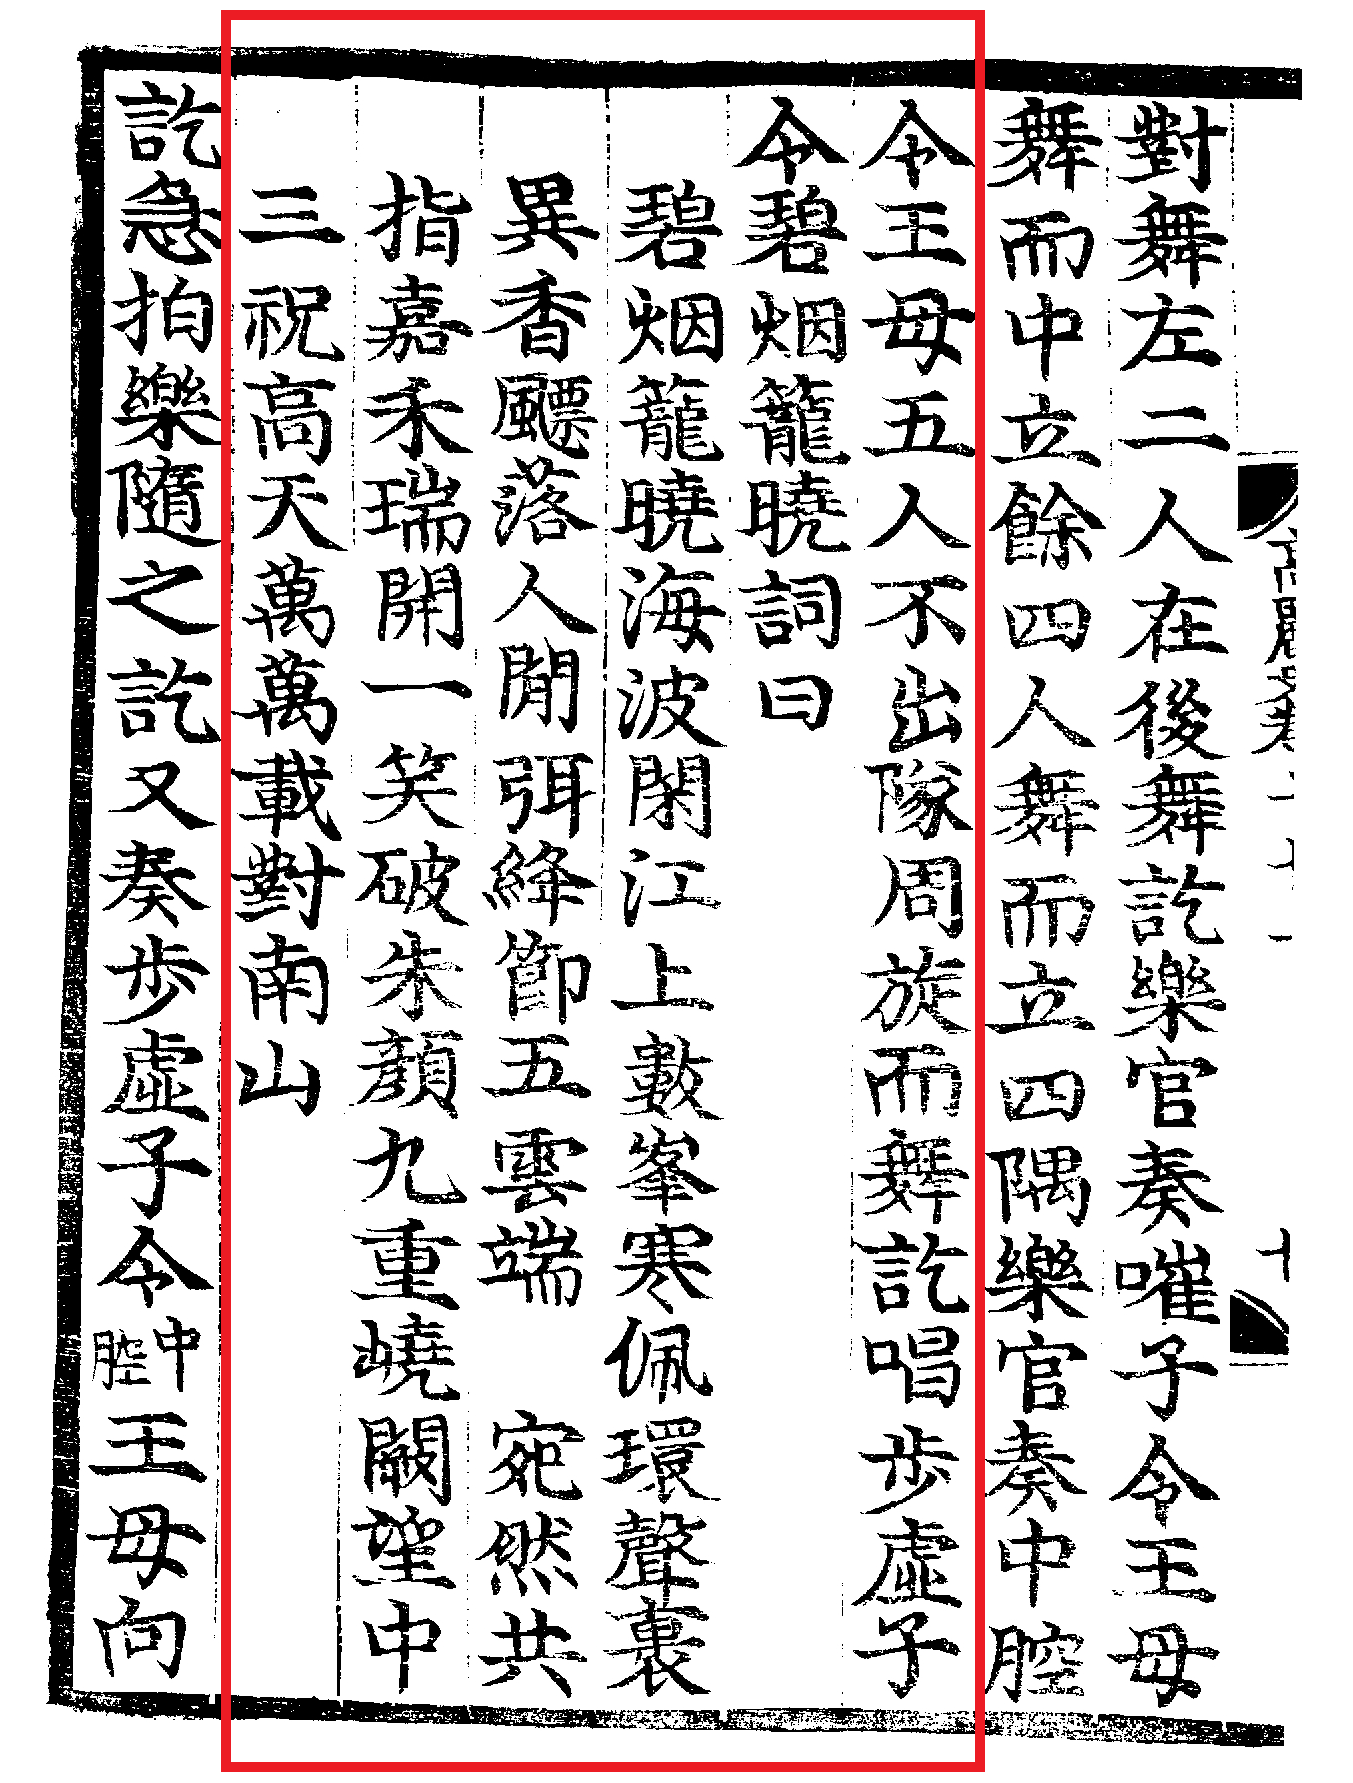 對舞左二人在後舞訖樂官奏嗺子令王母
舞而中立餘四人舞而立四隅樂官奏中腔
令王母五人不出隊周旋而舞訖唱步虛子
令碧烟籠曉詞曰
碧烟籠曉海波閑江上數峯寒佩環聲裏
異香飄落人閒弭絳節五雲端 宛然共
指嘉禾瑞開一笑破朱顏九重嶢闕望中
三祝高天萬萬載對南山
訖急拍樂隨之訖又奏步虛子令中腔王母向